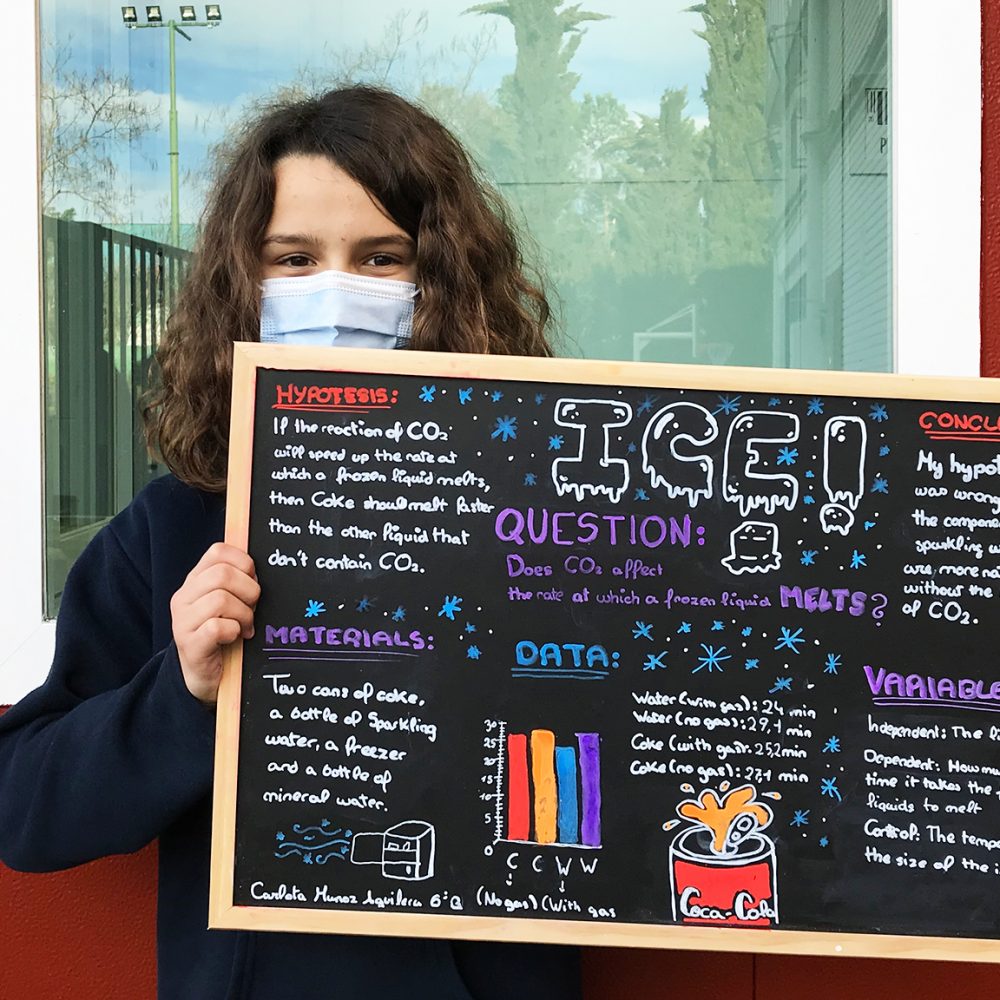 HYPOTESIS:
If the reaction of CO₂
will speed up the rate at
which a frozen liquid melts,
then Coke should melt faster
than the other liquid that
don't contain CO₂.
ICE!
QUESTION:
Does CO₂ affect
the rate at which a frozen liquid MELTS?
CONCLU
My hypot
was wrong
the compone
sparkling w
are more na
without the
of CO₂.
MATERIALS:
Two cans of coke,
a bottle of Sparkling
water, a freezer
and a bottle of
mineral water.
DATA:
30
25
20
15
10
5
0
C C W W
(No gas) (With gas
Water (with gas): 24 min
Water (no gas): 29,1 min
Coke (with gas): 25,2 min
Coke (no gas): 27,1 min
Coca-Cola
VARIABLE
Independent: The li
Dependent: How mu
time it takes the
liquids to melt
Control: The tempe
the size of the i
Carlota Munoz Aguilera 6ºB